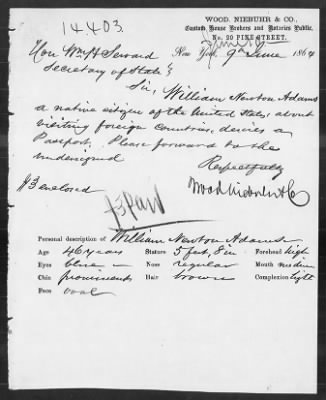 14403
WOOD, NIEBUHR & CO.,
Custom House Brokers and Notaries Public,
No. 20 PINE STREET.
New York, 9th June 1864
Hon Wm H Seward
Secretary of State
Sir, William Newton Adams
a native citizen of the United States, about
visiting foreign countries, desires a
Passport, Please forward to the
undersigned
Respectfully
$3 enclosed
Wood Niebuhr & Co
$3 Paid
Personal description of William Newton Adams
Age 46 years Stature 5 feet, 8 in Forehead high
Eyes blue Nose regular Mouth medium
Chin prominent Hair brown Complexion light
Face oval